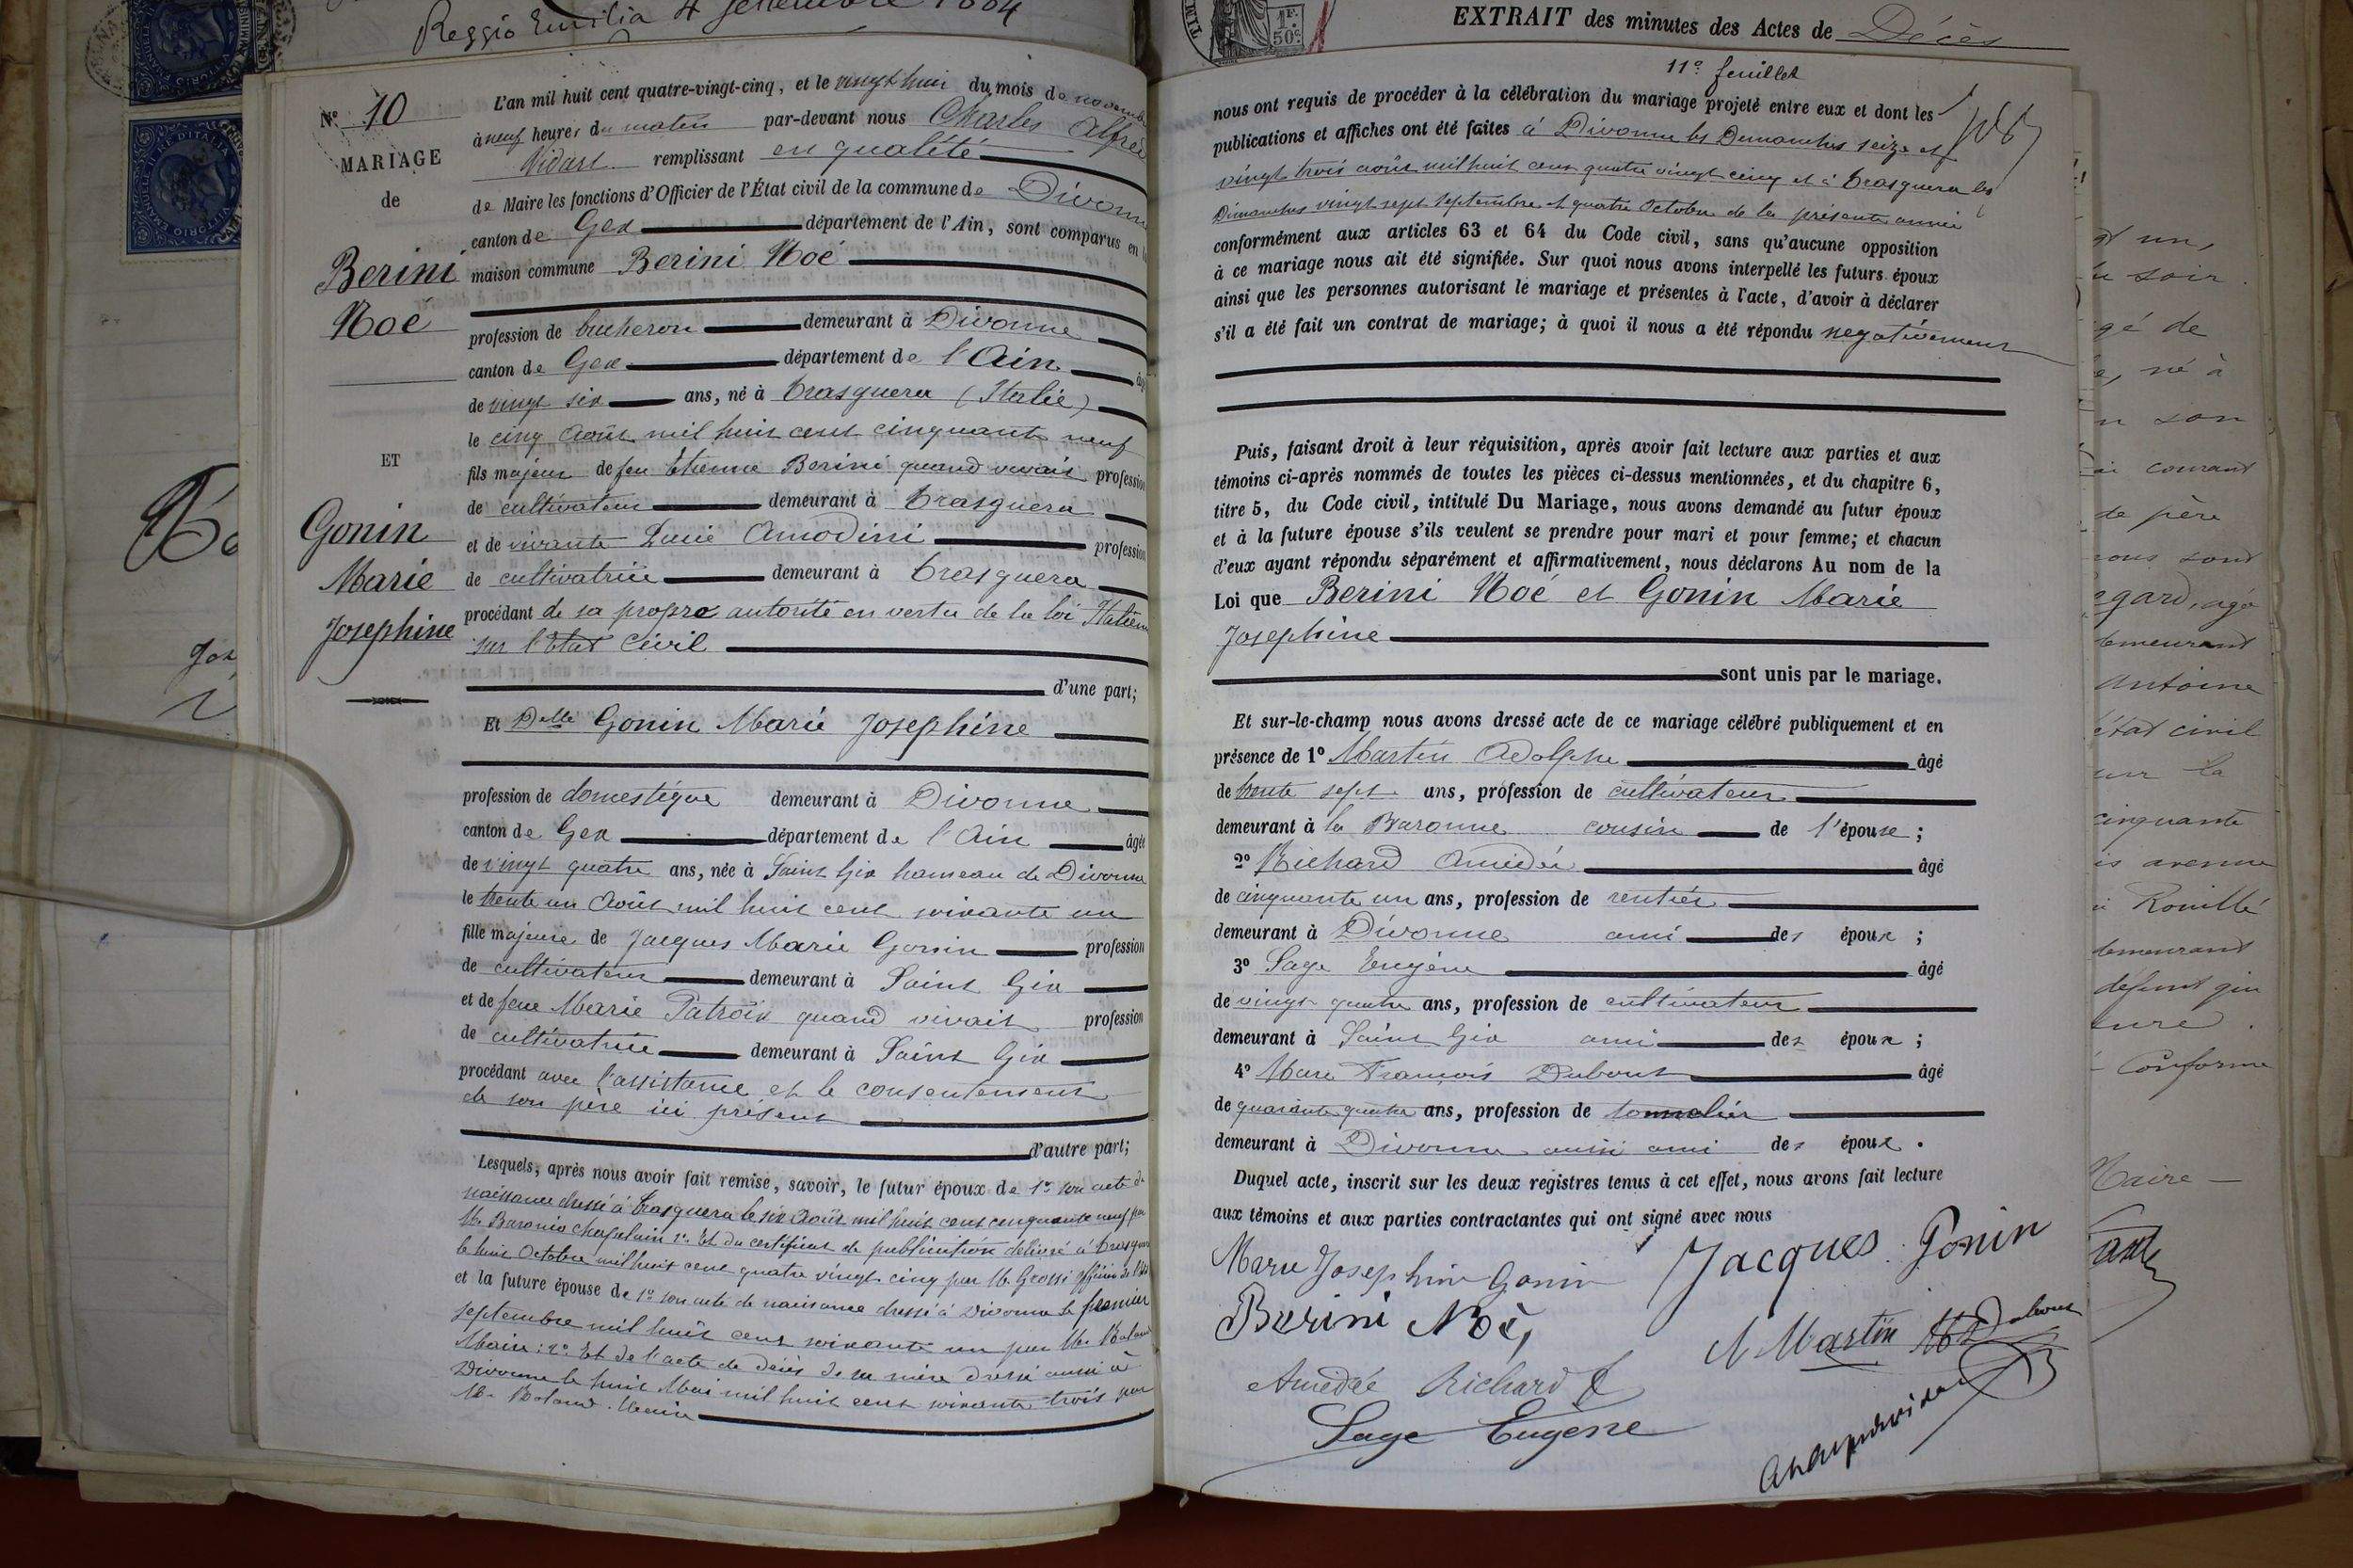 Reggio Emilia 4 settembre 1884
N° 10
MARIAGE
de
Berini
Noé
ET
Gonin
Marie
Josephine
L'an mil huit cent quatre-vingt-cinq, et le vingt huit du mois de novembre
à neuf heures du matin par-devant nous Charles Alfred
Vidart remplissant en qualité
de Maire les fonctions d'Officier de l'État civil de la commune de Divonne
canton de Gex département de l'Ain, sont comparus en la
maison commune Berini Noé
profession de bucheron demeurant à Divonne
canton de Gex département de l'Ain âgé
de vingt six ans, né à Trasquera (Italie)
le cinq Août mil huit cent cinquante neuf
fils majeur de feu Etienne Berini quand vivait profession
de cultivateur demeurant à Trasquera
et de vivante Lucie Amodini profession
de cultivatrice demeurant à Trasquera
procédant de sa propre autorité en vertu de la loi Italienne
sur l'Etat Civil
d'une part;
Et Delle Gonin Marie Josephine
profession de domestique demeurant à Divonne
canton de Gex département de l'Ain âgée
de vingt quatre ans, née à Saint Gix hameau de Divonne
le trente un Août mil huit cent soixante un
fille majeure de Jacques Marie Gonin profession
de cultivateur demeurant à Saint Gix
et de feue Marie Patroix quand vivait profession
de cultivatrice demeurant à Saint Gix
procédant avec l'assistance et le consentement
de son père ici présent
d'autre part;
Lesquels, après nous avoir fait remise, savoir, le futur époux de 1° son acte de
naissance dressé à Trasquera le six Août mil huit cent cinquante neuf par
Mr. Baronio chapelain 2° Et du certificat de publication délivré à Trasquera
le huit Octobre mil huit cent quatre vingt cinq par Mr. Grossi officier de l'état
et la future épouse de 1° son acte de naissance dressé à Divonne le premier
septembre mil huit cent soixante un par Mr. Roland
Maire: 2° Et de l'acte de décès de sa mère dressé aussi à
Divonne le huit Mai mil huit cent soixante trois par
Mr. Roland. Maire
EXTRAIT des minutes des Actes de Décès
11e feuillet
nous ont requis de procéder à la célébration du mariage projeté entre eux et dont les
publications et affiches ont été faites à Divonne les Dimanches seize et
vingt trois août mil huit cent quatre vingt cinq et à Trasquera les
Dimanches vingt sept Septembre et quatre Octobre de la présente année
conformément aux articles 63 et 64 du Code civil, sans qu'aucune opposition
à ce mariage nous ait été signifiée. Sur quoi nous avons interpellé les futurs époux
ainsi que les personnes autorisant le mariage et présentes à l'acte, d'avoir à déclarer
s'il a été fait un contrat de mariage; à quoi il nous a été répondu negativement
Puis, faisant droit à leur réquisition, après avoir fait lecture aux parties et aux
témoins ci-après nommés de toutes les pièces ci-dessus mentionnées, et du chapitre 6,
titre 5, du Code civil, intitulé Du Mariage, nous avons demandé au futur époux
et à la future épouse s'ils veulent se prendre pour mari et pour femme; et chacun
d'eux ayant répondu séparément et affirmativement, nous déclarons Au nom de la
Loi que Berini Noé et Gonin Marie
Josephine
sont unis par le mariage.
Et sur-le-champ nous avons dressé acte de ce mariage célébré publiquement et en
présence de 1° Martin Adolphe âgé
de trente sept ans, profession de cultivateur
demeurant à la Baronne cousin de l'épouse;
2° Richard Amédée âgé
de cinquante un ans, profession de rentier
demeurant à Divonne ami des époux;
3° Sage Eugène âgé
de vingt quatre ans, profession de cultivateur
demeurant à Saint Gix ami des époux;
4° Marc François Dubout âgé
de quarante quatre ans, profession de tonnelier
demeurant à Divonne aussi ami des époux.
Duquel acte, inscrit sur les deux registres tenus à cet effet, nous avons fait lecture
aux témoins et aux parties contractantes qui ont signé avec nous
Marie Josephine Gonin Jacques Gonin
Berini Noè,
A Martin
Amédée Richard
Sage Eugène